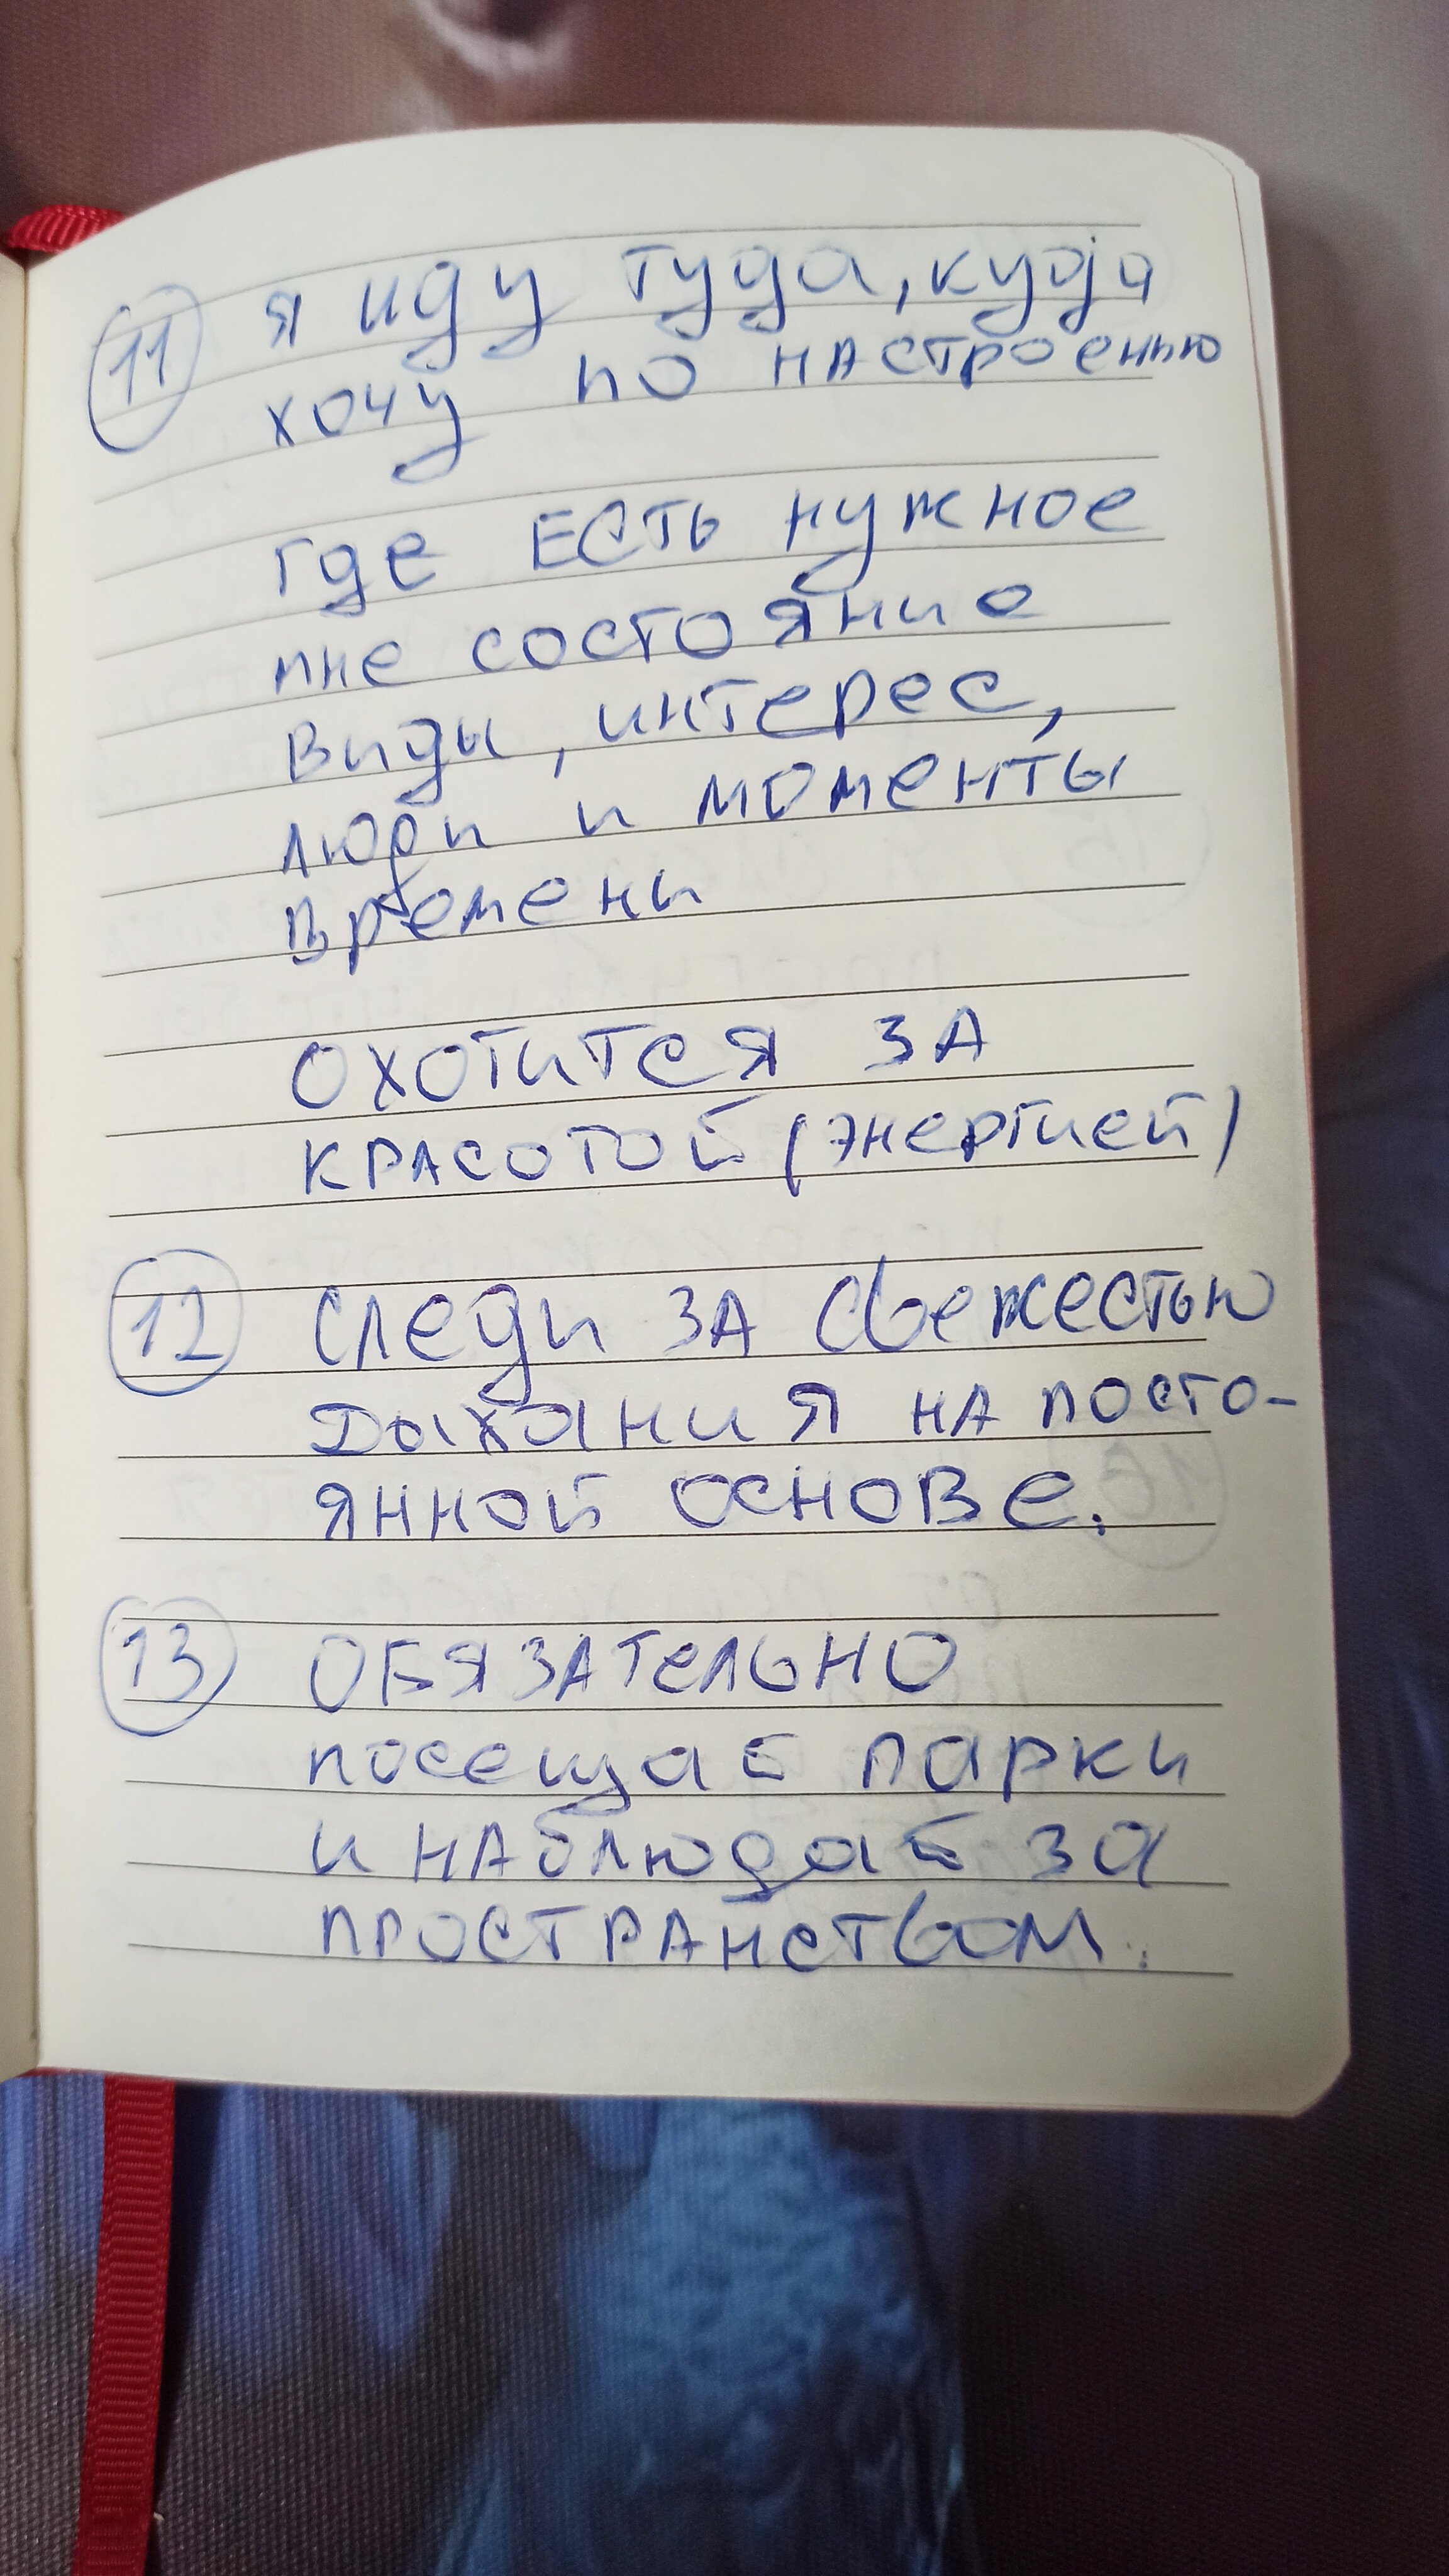 11 я иду туда, куда
хочу по настроенью
где ЕСТЬ нужное
мне состояние
виды, интерес,
люди и моменты
времени
охотится ЗА
КРАСОТОЙ (энергией)
12 следи ЗА свежестью
дыхания НА посто-
янной основе.
13 ОБЯЗАТЕЛЬНО
посещай парки
и наблюдай за
пространством.